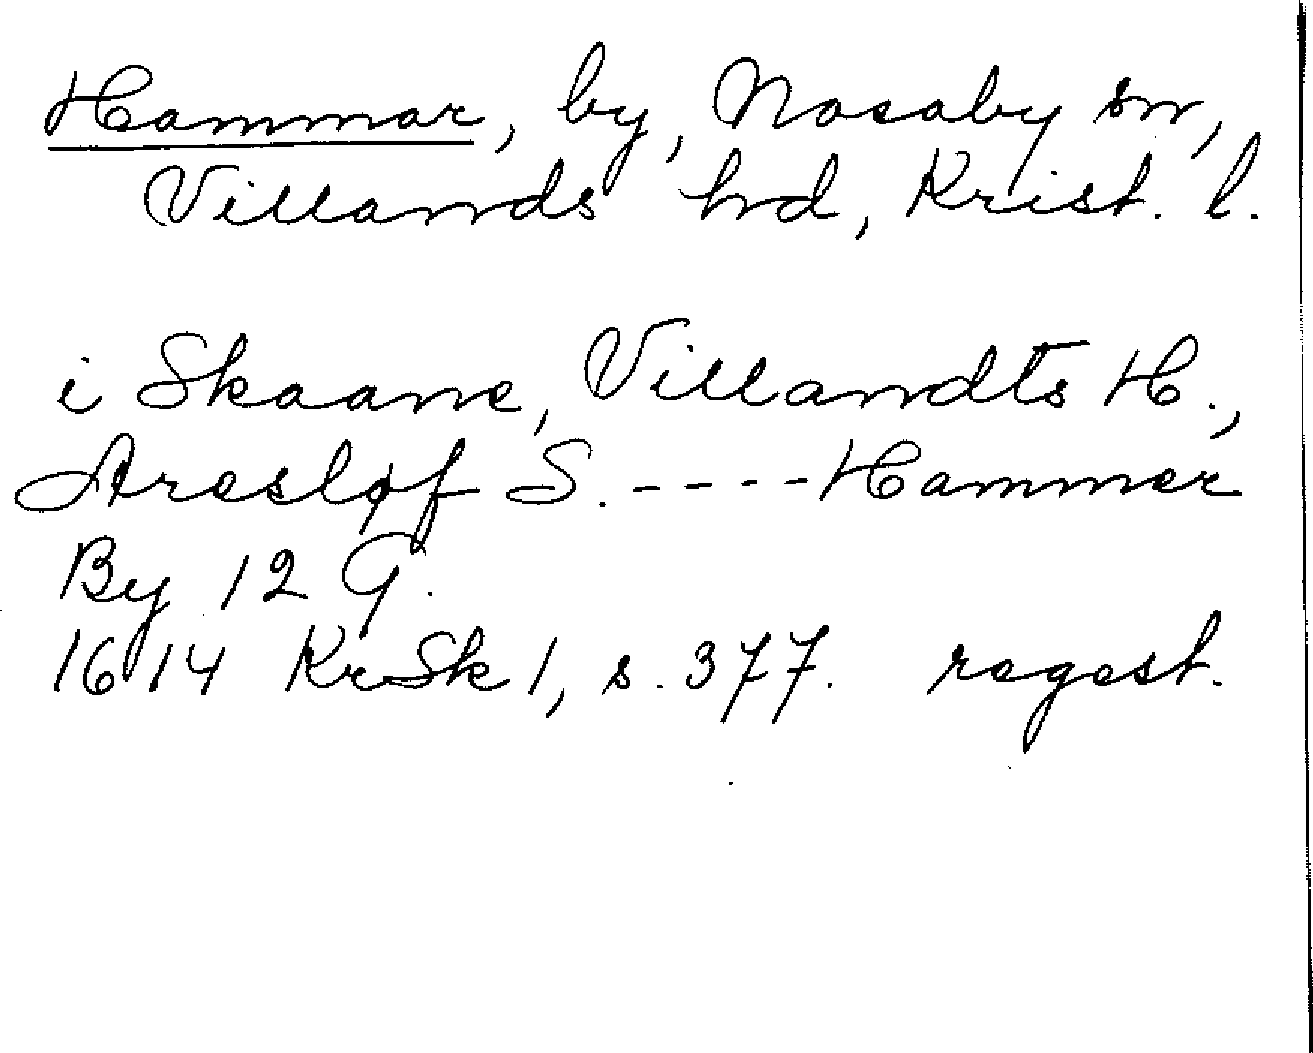 Hammar, by, Nosaby sn,
Villands hd, Krist. l.
i Skaane, Villandts H.,
Aresløf S. ---- Hammer
By 12 G.
1614 KrSk 1, s. 377. regest.